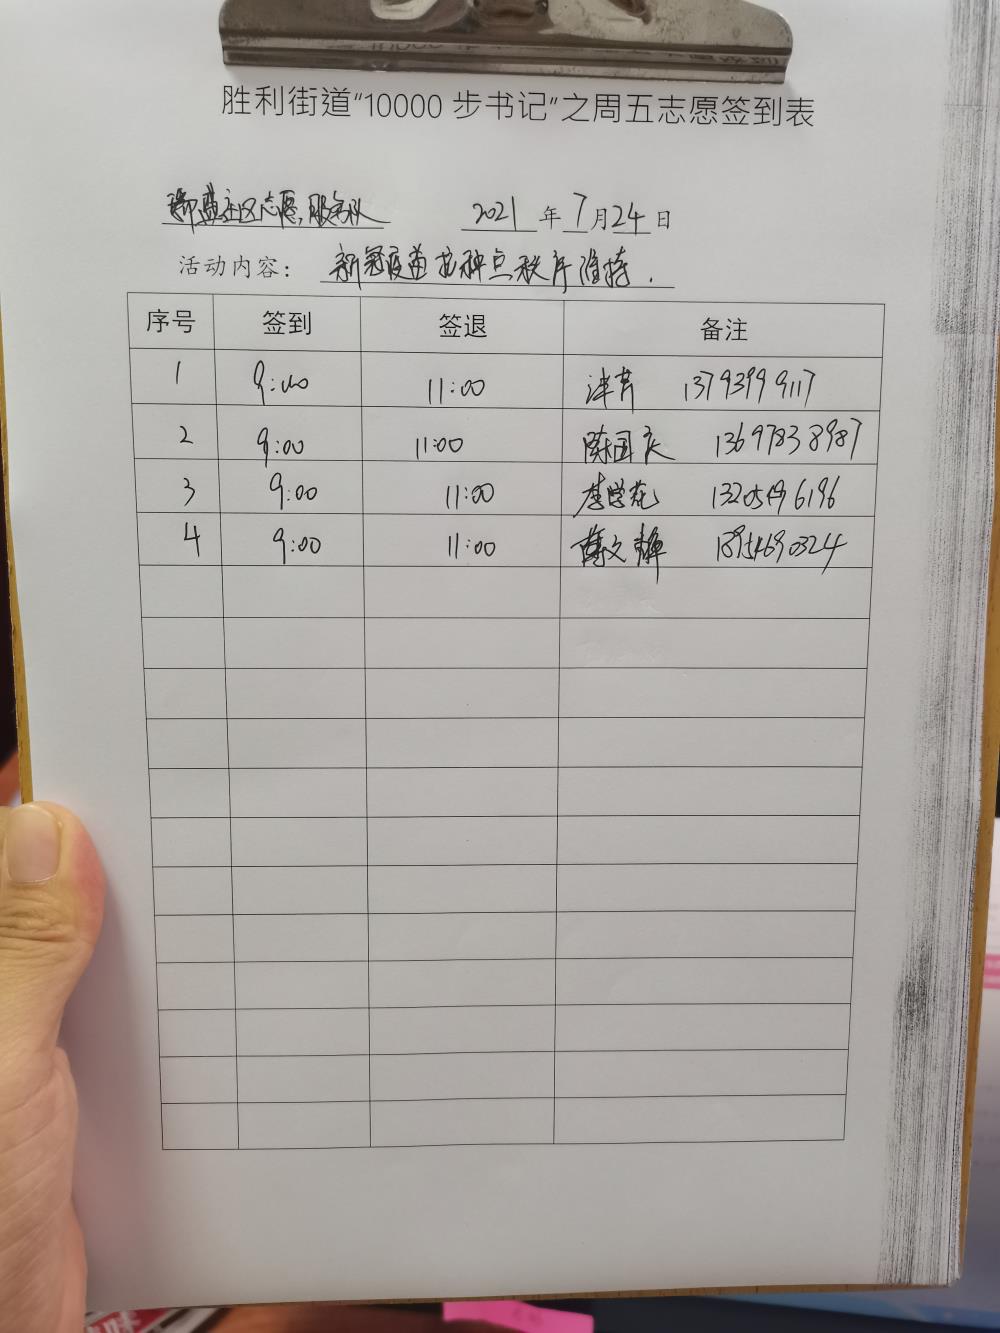 胜利街道“10000 步书记”之周五志愿签到表
瑞盛社区志愿服务队 2021 年 7 月 24 日
活动内容： 新冠疫苗接种点秩序维持.
序号 签到 签退 备注
1 9:00 11:00 13793999117
2 9:00 11:00 陈国庆 13697838987
3 9:00 11:00 李学花
4 9:00 11:00 文静